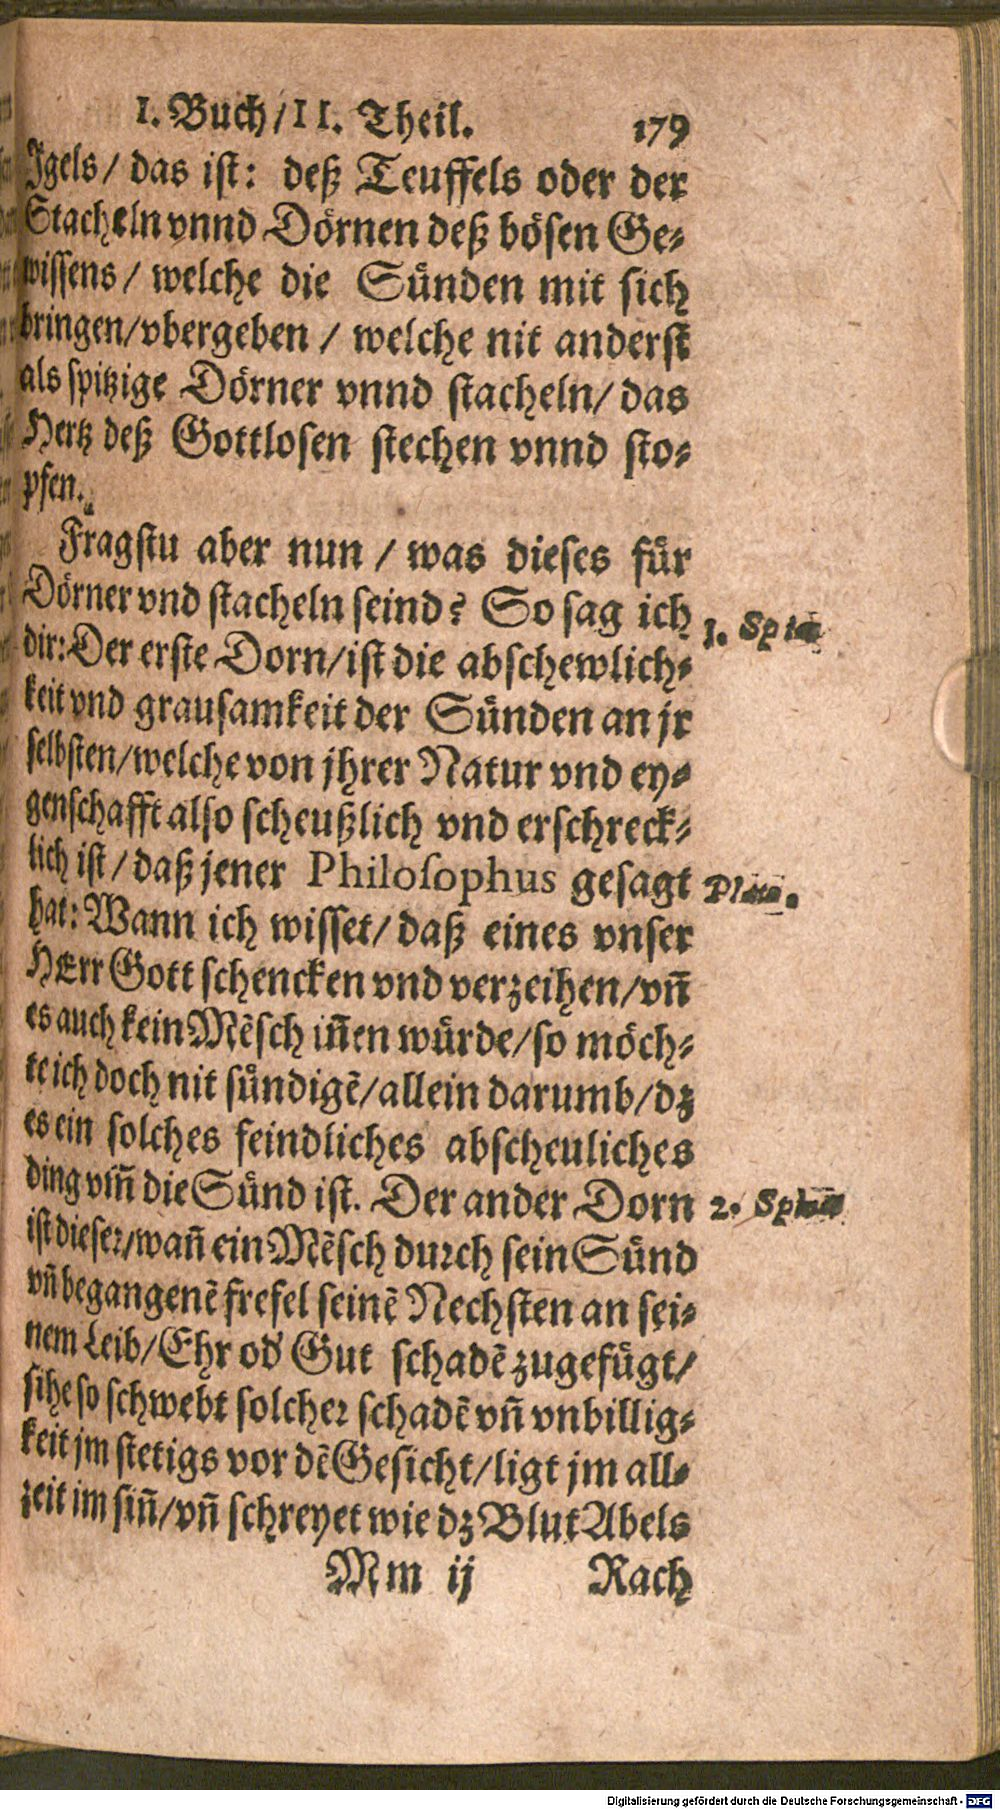 I. Buch/II. Theil. 179
Igels/ das ist: deß Teuffels oder der
Stacheln vnnd Dörnen deß bösen Ge-
wissens/ welche die Sünden mit sich
bringen/vbergeben / welche nit anderst
als spitzige Dörner vnnd stacheln/ das
Hertz deß Gottlosen stechen vnnd sto-
pfen.
Fragstu aber nun / was dieses für
Dörner vnd stacheln seind? So sag ich
1. Spin
dir: Der erste Dorn/ist die abschewlich-
keit vnd grausamkeit der Sünden an jr
selbsten/welche von jhrer Natur vnd ey-
genschafft also scheußlich vnd erschreck-
lich ist/daß jener Philosophus gesagt
hat: Wann ich wisset/daß eines vnser
HErr Gott schencken vnd verzeihen/vn̄
es auch kein Mẽsch in̄en würde/so möch-
te ich doch nit sündigẽ/allein darumb/dz
es ein solches feindliches abscheuliches
ding vm̄ die Sünd ist. Der ander Dorn
2. Spin
ist dieser/wan̄ ein Mẽsch durch sein Sünd
vn̄ begangenẽ frefel seinẽ Nechsten an sei-
nem Leib/Ehr od' Gut schadẽ zugefügt/
sihe so schwebt solcher schadẽ vn̄ vnbillig-
keit jm stetigs vor dẽ Gesicht/ligt jm all-
zeit im sin̄/vn̄ schreyet wie dz Blut Abels
Mm ij Rach
Digitalisierung gefördert durch die Deutsche Forschungsgemeinschaft - DFG